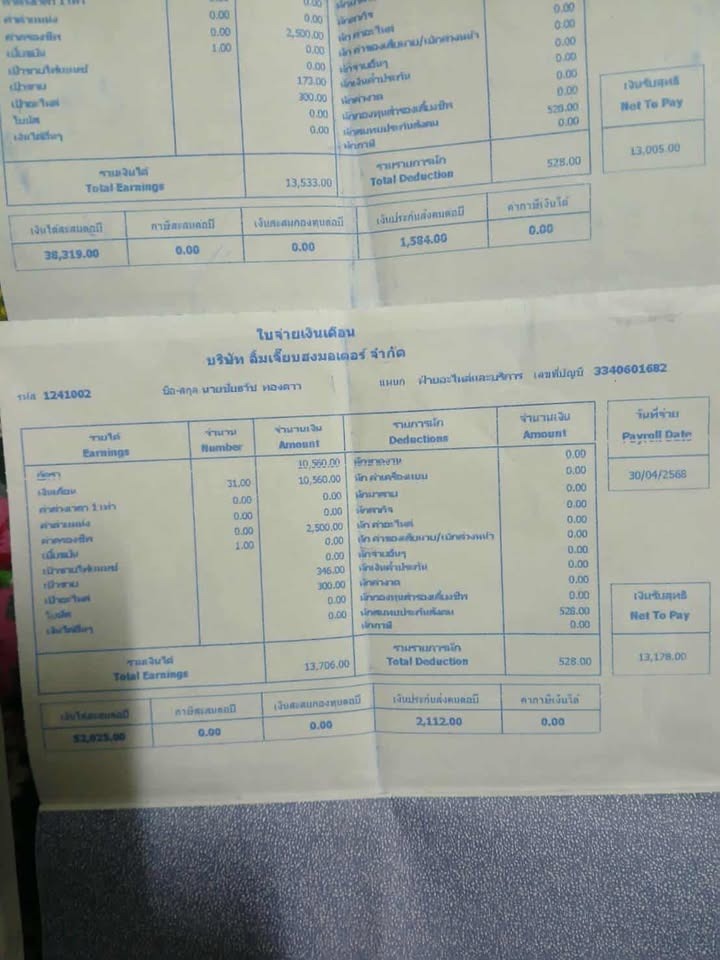 0.00 0.00
ค่าตำแหน่ง 0.00 0.00 หักภารกิจ 0.00
ค่าครองชีพ 0.00 2,500.00 หัก ค่าอะไหล่ 0.00
เบี้ยขยัน 1.00 0.00 หัก ค่าของเสียหาย/เบิกล่วงหน้า 0.00
0.00 หักจ่ายอื่นๆ 0.00
เป้าขาย 173.00 หักเงินค้ำประกัน 0.00
เป้าอะไหล่ 300.00 หักค่างวด 0.00
โบนัส 0.00 หักกองทุนสำรองเลี้ยงชีพ 0.00
เงินได้อื่นๆ 0.00 หักสมทบประกันสังคม 528.00
หักภาษี 0.00
เงินรับสุทธิ
Net To Pay
13,005.00
รวมเงินได้ รวมรายการหัก
Total Earnings 13,533.00 Total Deduction 528.00
เงินได้สะสมต่อปี ภาษีสะสมต่อปี เงินสะสมกองทุนต่อปี เงินประกันสังคมต่อปี ค่าภาษีเงินได้
38,319.00 0.00 0.00 1,584.00 0.00
ใบจ่ายเงินเดือน
บริษัท ลิ้มเจี๊ยบฮงมอเตอร์ จำกัด
รหัส 1241002 ชื่อ-สกุล ทองดาว แผนก ฝ่ายอะไหล่และบริการ เลขที่บัญชี 3340601682
รายได้ จำนวน จำนวนเงิน รายการหัก จำนวนเงิน วันที่จ่าย
Earnings Number Amount Deductions Amount Payroll Date
30/04/2568
อัตรา 10,560.00 หักขาดงาน 0.00
เงินเดือน 31.00 10,560.00 หัก ค่าเครื่องแบบ 0.00
ค่าล่วงเวลา 1 เท่า 0.00 0.00 หักมาสาย 0.00
ค่าตำแหน่ง 0.00 0.00 หักภารกิจ 0.00
ค่าครองชีพ 0.00 2,500.00 หัก ค่าอะไหล่ 0.00
เบี้ยขยัน 1.00 0.00 หัก ค่าของเสียหาย/เบิกล่วงหน้า 0.00
0.00 หักจ่ายอื่นๆ 0.00
เป้าขาย 346.00 หักเงินค้ำประกัน 0.00
เป้าอะไหล่ 300.00 หักค่างวด 0.00
โบนัส 0.00 หักกองทุนสำรองเลี้ยงชีพ 0.00
เงินได้อื่นๆ 0.00 หักสมทบประกันสังคม 528.00
หักภาษี 0.00
เงินรับสุทธิ
Net To Pay
13,178.00
รวมเงินได้ รวมรายการหัก
Total Earnings 13,706.00 Total Deduction 528.00
เงินได้สะสมต่อปี ภาษีสะสมต่อปี เงินสะสมกองทุนต่อปี เงินประกันสังคมต่อปี ค่าภาษีเงินได้
52,025.00 0.00 0.00 2,112.00 0.00